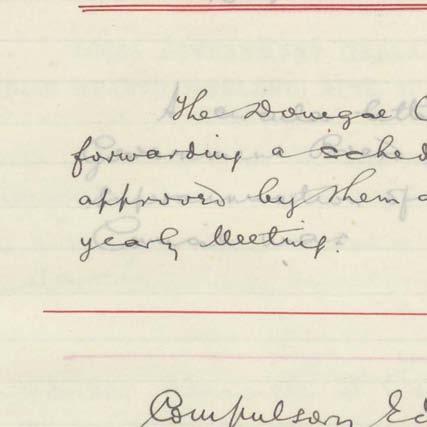 The Donegal C
forwarding a sched
approved by them a
yearly Meeting.
Compulsory Ed